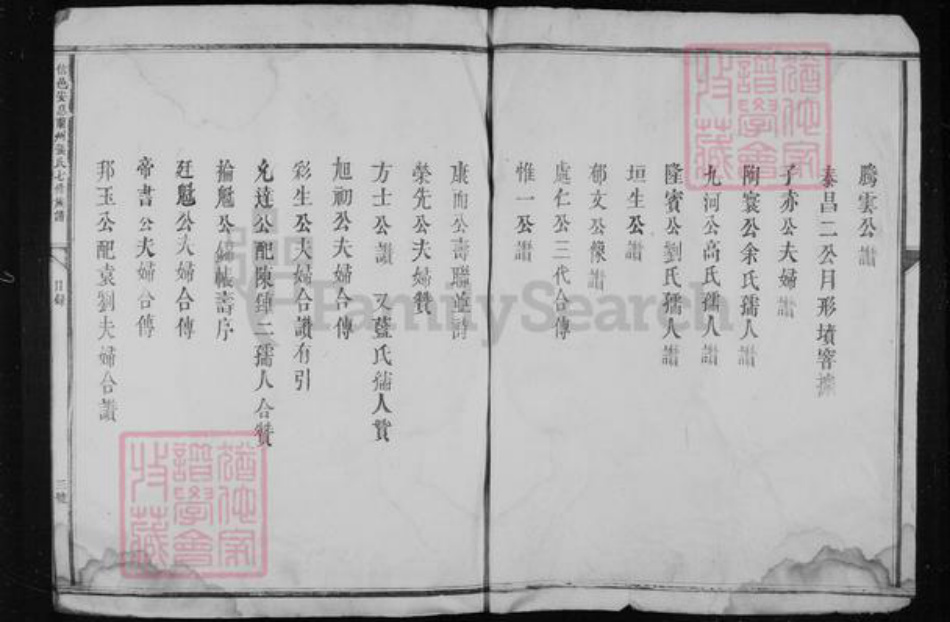 騰雲公讚
泰昌二公月形墳窨據
子亦公夫婦讚
陶寰公余氏孺人讚
九河公高氏孺人讚
隆賓公劉氏孺人讚
垣生公讚
郁文公像讚
處仁公三代合傳
惟一公讚
康而公壽聯並詩
榮先公夫婦贊
方士公讚 又藍氏孺人贊
旭初公夫婦合傳
彩生公夫婦合讚有引
兌達公配陳鍾二孺人合贊
掄魁公錦帳壽序
廷魁公夫婦合傳
帝書公夫婦合傳
邦玉公配袁劉夫婦合讚
信邑安息蘭州張氏七修族譜
目錄
三號
譜學會
收藏
譜學會
收藏
FamilySearch